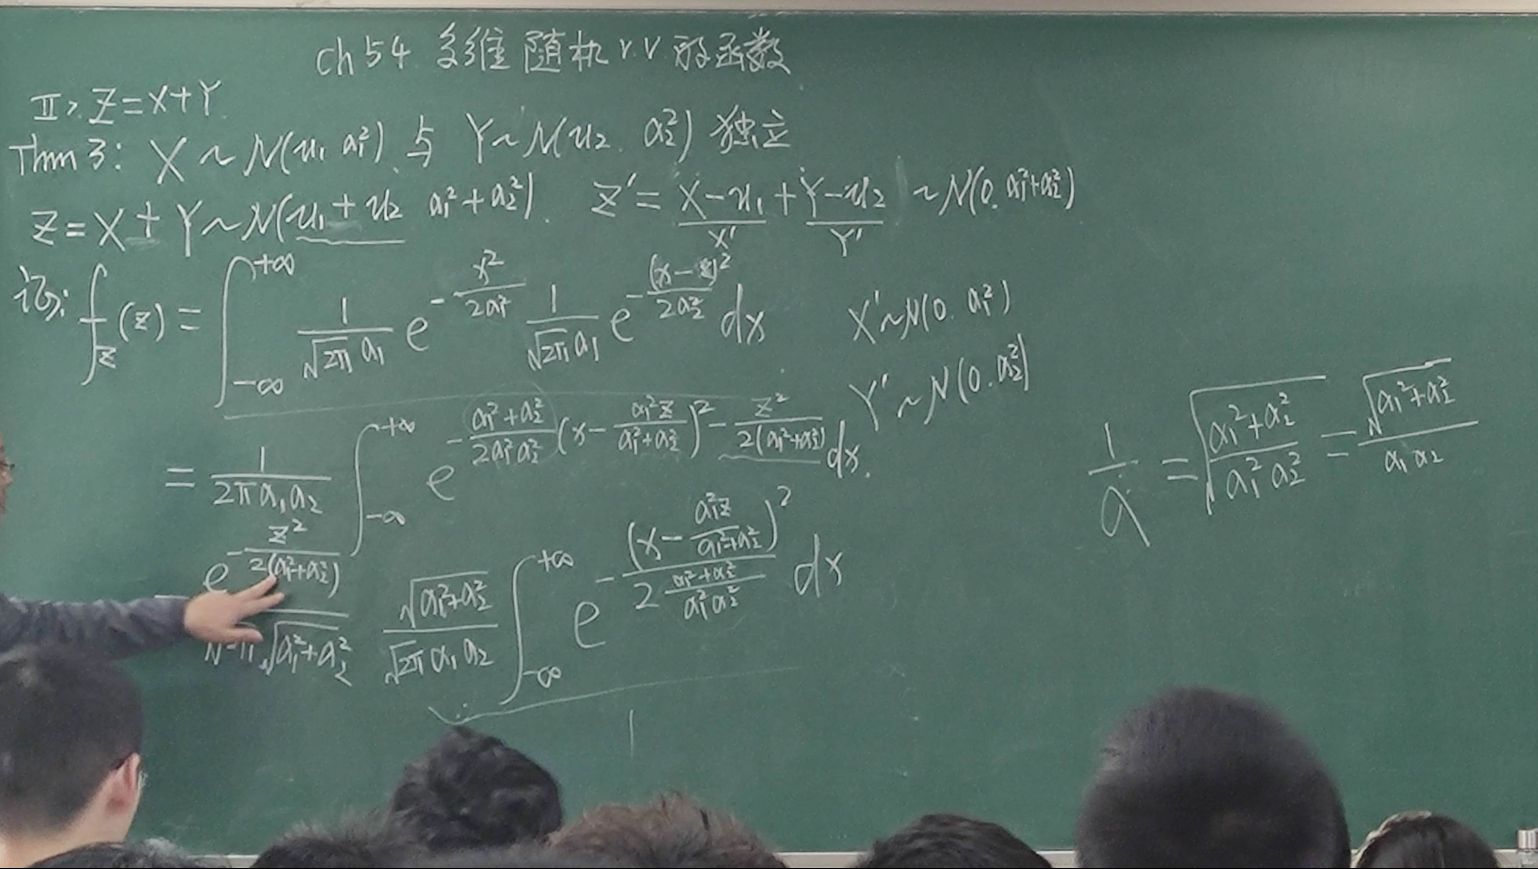 ch 5.4 多维随机 r.v. 的函数
II> Z=X+Y
Thm 3: X ~ N(u₁ a₁²) 与 Y ~ N(u₂. a₂²) 独立
Z = X + Y ~ N(u₁ + u₂ a₁²+a₂²). Z' = X-u₁ + Y-u₂ ~ N(0. a₁²+a₂²)
X' Y'
证: f_Z(z) = ∫_{-∞}^{+∞} \frac{1}{\sqrt{2π} a₁} e^{-\frac{x²}{2a₁²}} \frac{1}{\sqrt{2π} a₁} e^{-\frac{(x-z)²}{2a₂²}} dx
X' ~ N(0. a₁²)
Y' ~ N(0. a₂²)
= \frac{1}{2π a₁ a₂} ∫_{-∞}^{+∞} e^{-\frac{a₁²+a₂²}{2a₁²a₂²}(x-\frac{a₁²z}{a₁²+a₂²})²-\frac{z²}{2(a₁²+a₂²)}} dx.
\frac{e^{-\frac{z²}{2(a₁²+a₂²)}}}{\sqrt{2π}\sqrt{a₁²+a₂²}} \frac{\sqrt{a₁²+a₂²}}{\sqrt{2π} a₁ a₂} ∫_{-∞}^{+∞} e^{-\frac{(x-\frac{a₁²z}{a₁²+a₂²})²}{2\frac{a₁²+a₂²}{a₁²a₂²}}} dx
1
\frac{1}{a} = \sqrt{\frac{a₁²+a₂²}{a₁² a₂²}} = \frac{\sqrt{a₁²+a₂²}}{a₁ a₂}